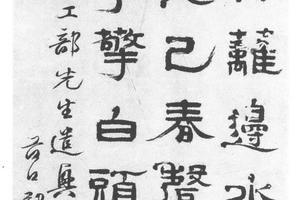 籬邊水
已春聲
擎白頭
工部先生遺興